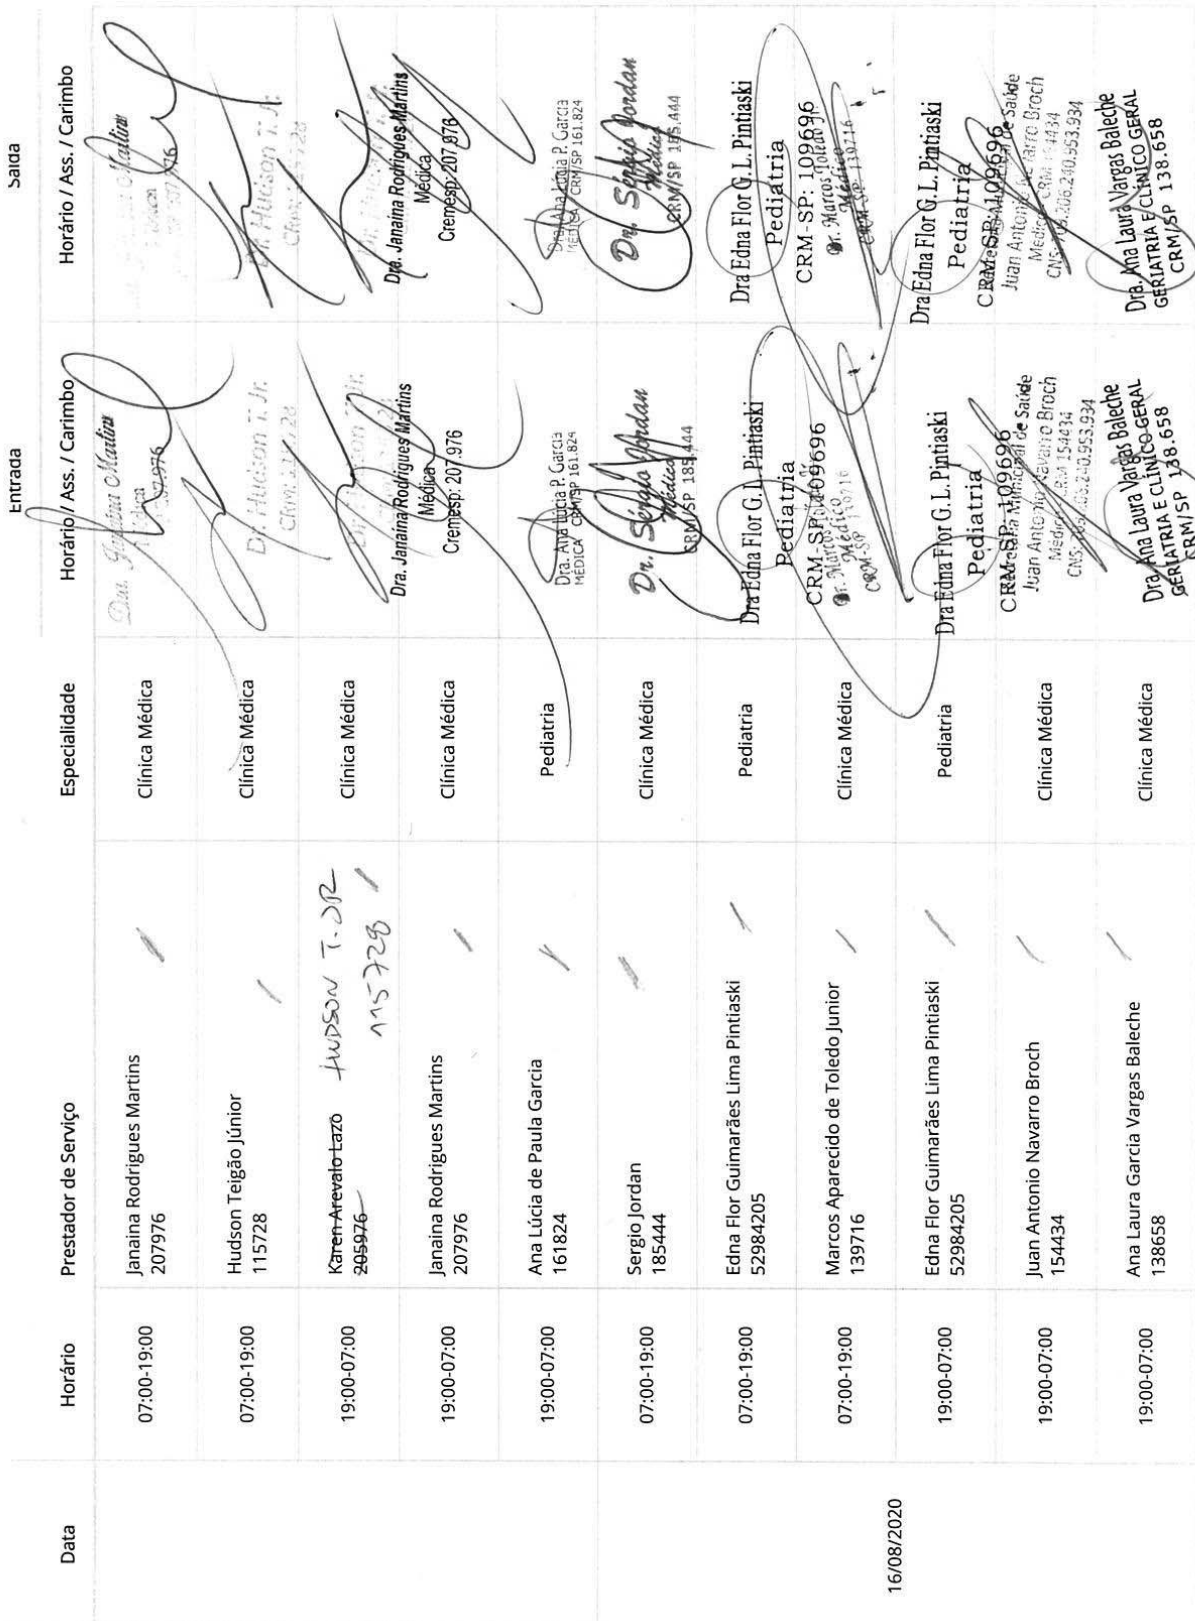 Entrada
Saída
Data
Horário
Prestador de Serviço
Especialidade
Horário / Ass. / Carimbo
Horário / Ass. / Carimbo
07:00-19:00
Janaina Rodrigues Martins
207976
Clínica Médica
07:00-19:00
Hudson Teigão Júnior
115728
Clínica Médica
Dr. Hudson T. Jr.
Dr. Hudson T. Jr.
19:00-07:00
Karen Arevalo Lazo
205976
HUDSON T. JR
115728
Clínica Médica
19:00-07:00
Janaina Rodrigues Martins
207976
Clínica Médica
Dra. Janaina Rodrigues Martins
Médica
Cremesp: 207.976
Dra. Janaina Rodrigues Martins
Médica
Cremesp: 207.976
19:00-07:00
Ana Lúcia de Paula Garcia
161824
Pediatria
Dra. Ana Lúcia P. Garcia
MÉDICA CRM/SP 161.824
Dra. Ana Lúcia P. Garcia
MÉDICA CRM/SP 161.824
16/08/2020
07:00-19:00
Sergio Jordan
185444
Clínica Médica
Dr. Sérgio Jordan
Médico
CRM/SP 185.444
Dr. Sérgio Jordan
Médico
CRM/SP 185.444
07:00-19:00
Edna Flor Guimarães Lima Pintiaski
52984205
Pediatria
Dra Edna Flor G. L. Pintiaski
Pediatria
CRM-SP: 109696
Dra Edna Flor G. L. Pintiaski
Pediatria
CRM-SP: 109696
07:00-19:00
Marcos Aparecido de Toledo Junior
139716
Clínica Médica
Dr. Marcos Toledo Jr.
Médico
CRM-SP 139716
Dr. Marcos Toledo Jr.
Médico
CRM-SP 139716
19:00-07:00
Edna Flor Guimarães Lima Pintiaski
52984205
Pediatria
Dra Edna Flor G. L. Pintiaski
Pediatria
CRM-SP: 109696
Dra Edna Flor G. L. Pintiaski
Pediatria
CRM-SP: 109696
19:00-07:00
Juan Antonio Navarro Broch
154434
Clínica Médica
Secretaria Municipal de Saúde
Juan Antonio Navarro Broch
Médico CRM 154434
CNS: 706.206.240.953.934
Juan Antonio Navarro Broch
CNS: 706.206.240.953.934
19:00-07:00
Ana Laura Garcia Vargas Baleche
138658
Clínica Médica
Dra. Ana Laura Vargas Baleche
GERIATRIA E CLÍNICO GERAL
CRM/SP 138.658
Dra. Ana Laura Vargas Baleche
GERIATRIA E CLÍNICO GERAL
CRM/SP 138.658